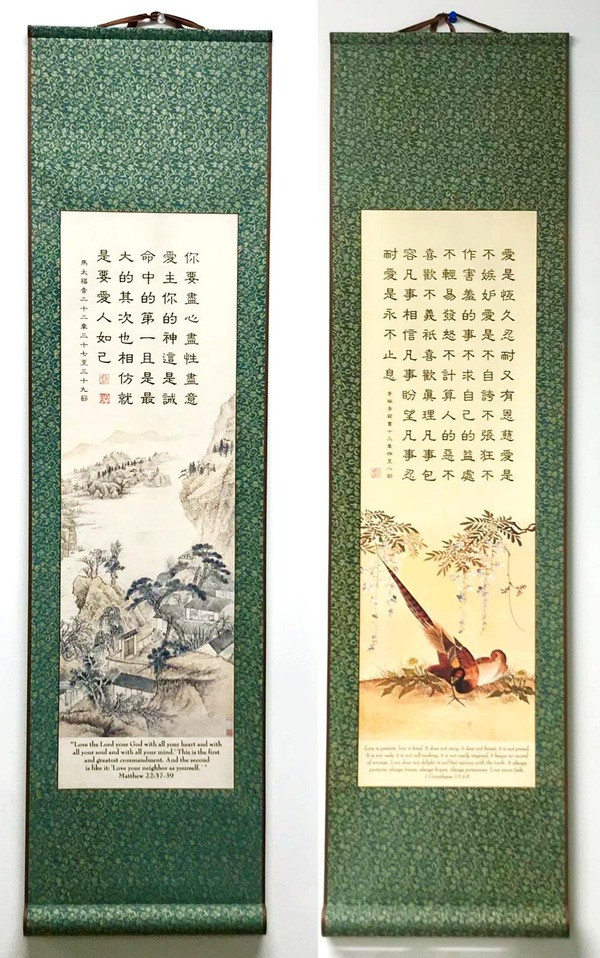 你要盡心盡性盡意
愛主你的神這是誡
命中的第一且是最
大的其次也相仿就
是要愛人如己
馬太福音二十二章三十七至三十九節
"'Love the Lord your God with all your heart and with
all your soul and with all your mind.' This is the first
and greatest commandment. And the second
is like it: 'Love your neighbor as yourself.' "
Matthew 22:37-39
愛是恆久忍耐又有恩慈愛是
不嫉妒愛是不自誇不張狂不
作害羞的事不求自己的益處
不輕易發怒不計算人的惡不
喜歡不義祇喜歡眞理凡事包
容凡事相信凡事盼望凡事忍
耐愛是永不止息
哥林多前書十三章四至八節
Love is patient, love is kind. It does not envy, it does not boast, it is not proud.
It is not rude, it is not self-seeking, it is not easily angered, it keeps no record
of wrongs. Love does not delight in evil but rejoices with the truth. It always
protects, always trusts, always hopes, always perseveres. Love never fails.
1 Corinthians 13:4-8